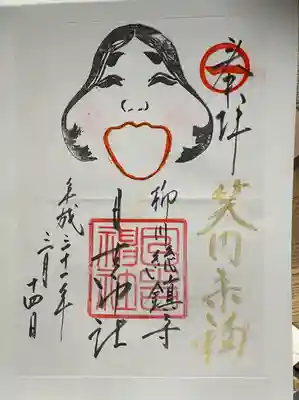 奉拝
笑門来福
柳川総鎮守
日吉神社
日吉
神社
平成三十一年
三月
十四日